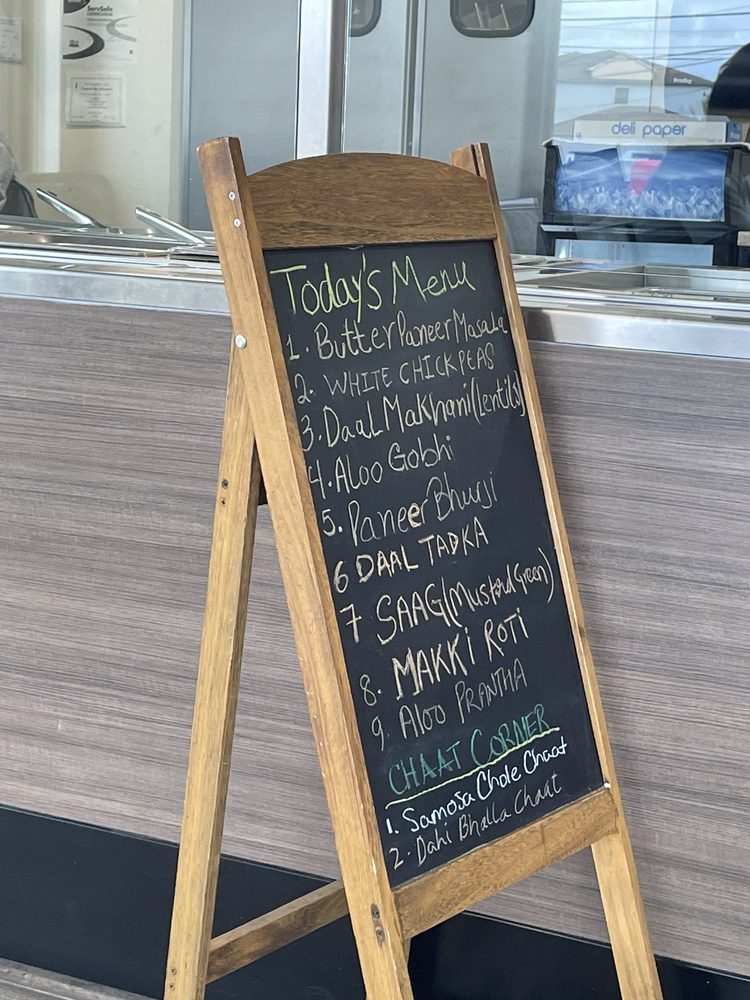 ServSafe
deli paper
Today's Menu
1. Butter Paneer Masala
2. WHITE CHICKPEAS
3. Daal Makhani (Lentils)
4. Aloo Gobhi
5. Paneer Bhurji
6 DAAL TADKA
7 SAAG (Mustard Green)
8. MAKKi ROTi
9. Aloo PRANTHA
CHAAT CORNER
1. Samosa Chole Chaat
2. Dahi Bhalla Chaat